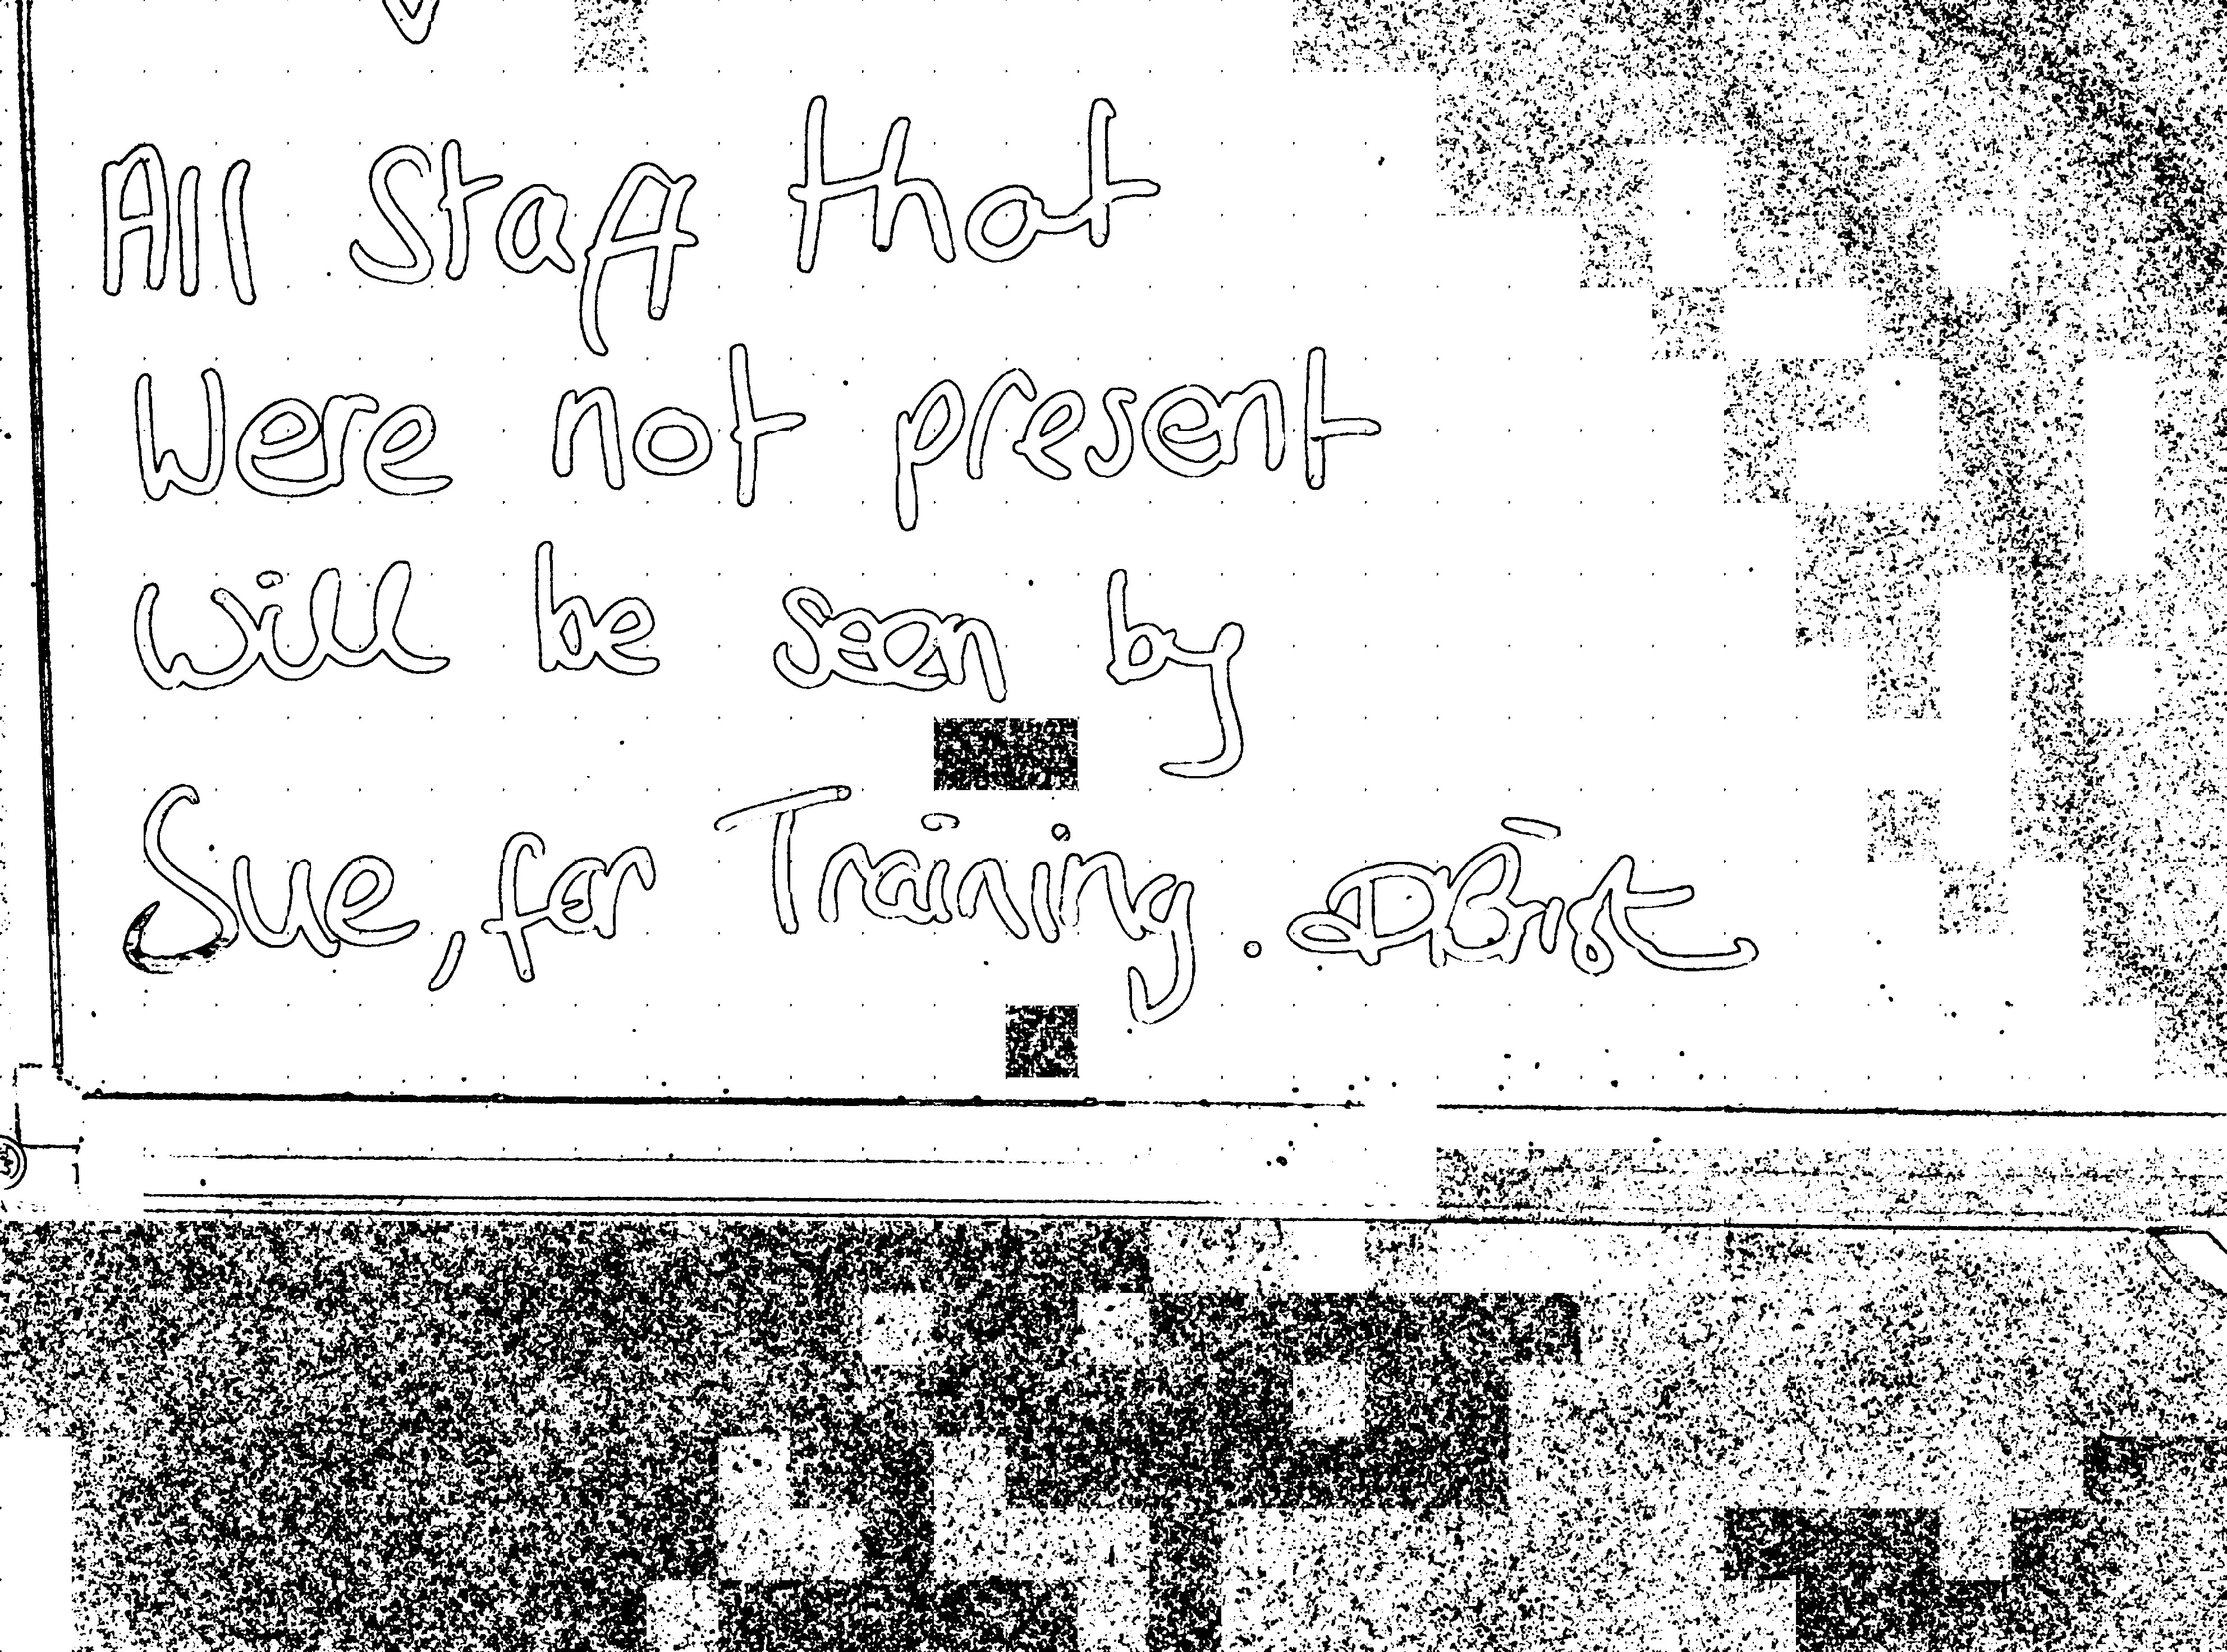 All staff that
were not present
will be seen by
Sue, for Training.